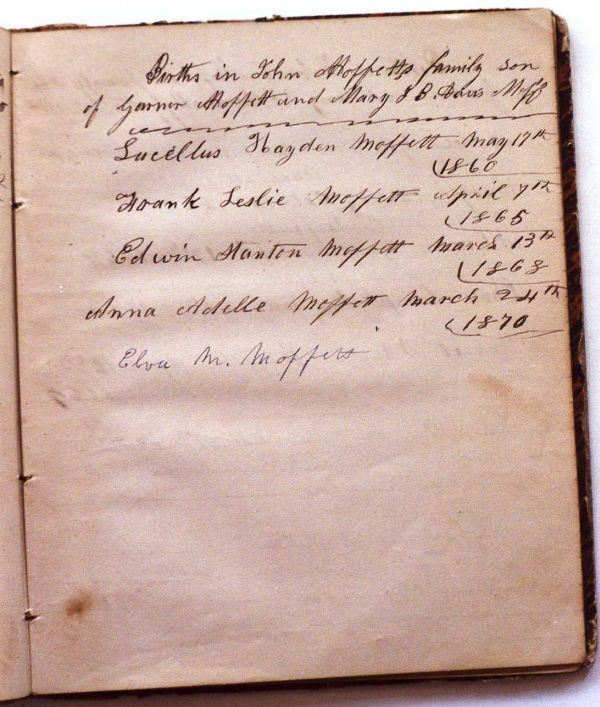 Births in John Moffetts family son
of Garner Moffett and Mary J B. Davis Moff
Lucellus Hayden Moffett May 17th
1860
Frank Leslie Moffett April 7th
1865
Edwin Stanton Moffett March 13th
1868
Anna Adelle Moffett March 24th
1870
Elva M. Moffett